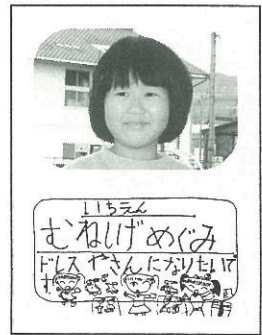 いちえん
むねしげめぐみ
ドレスやさんになりたいで
す